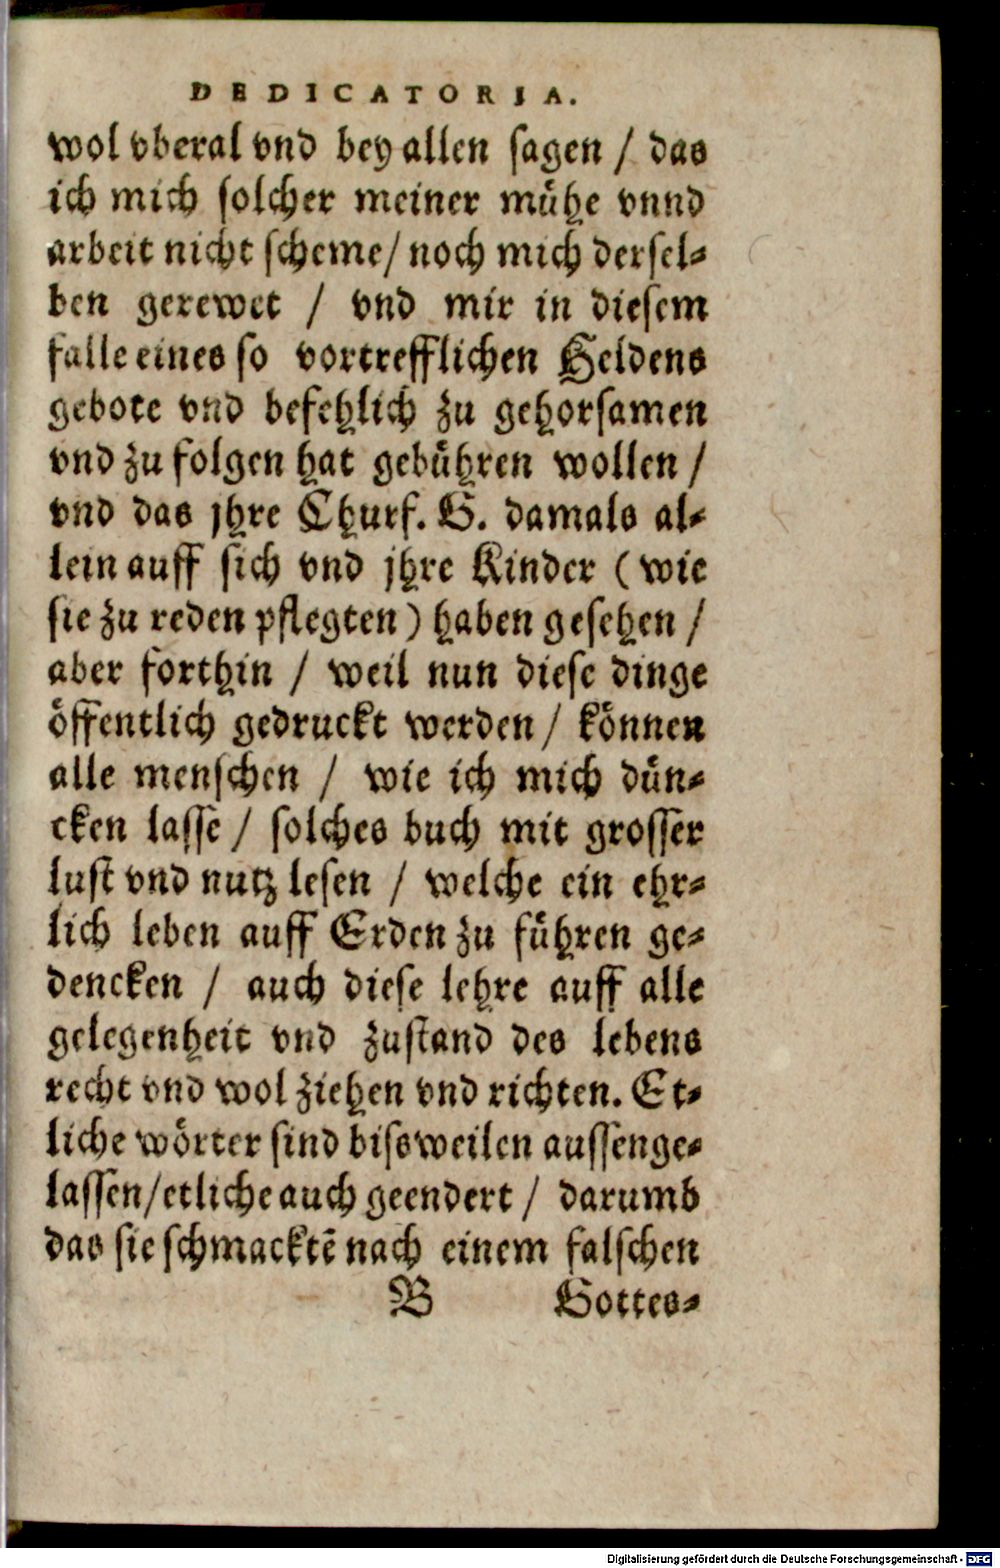 DEDICATORIA.
wol vberal vnd bey allen sagen / das
ich mich solcher meiner mühe vnnd
arbeit nicht scheme/ noch mich dersel-
ben gerewet / vnd mir in diesem
falle eines so vortrefflichen Heldens
gebote vnd befehlich zu gehorsamen
vnd zu folgen hat gebühren wollen /
vnd das jhre Churf. G. damals al-
lein auff sich vnd jhre Kinder ( wie
sie zu reden pflegten ) haben gesehen /
aber forthin / weil nun diese dinge
öffentlich gedruckt werden / können
alle menschen / wie ich mich dün-
cken lasse / solches buch mit grosser
lust vnd nutz lesen / welche ein ehr-
lich leben auff Erden zu führen ge-
dencken / auch diese lehre auff alle
gelegenheit vnd zustand des lebens
recht vnd wol ziehen vnd richten. Et-
liche wörter sind bissweilen aussenge-
lassen/etliche auch geendert / darumb
das sie schmacktē nach einem falschen
B Gottes-
Digitalisierung gefördert durch die Deutsche Forschungsgemeinschaft - DFG